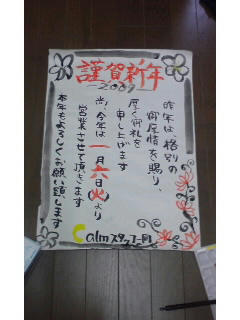 謹賀新年
-2009-
昨年は、格別の
御厚情を賜り、
厚く御礼を
申し上げます
尚、今年は一月六日(火)より
営業させて頂きます
本年もよろしくお願い致します
Calmスタッフ一同